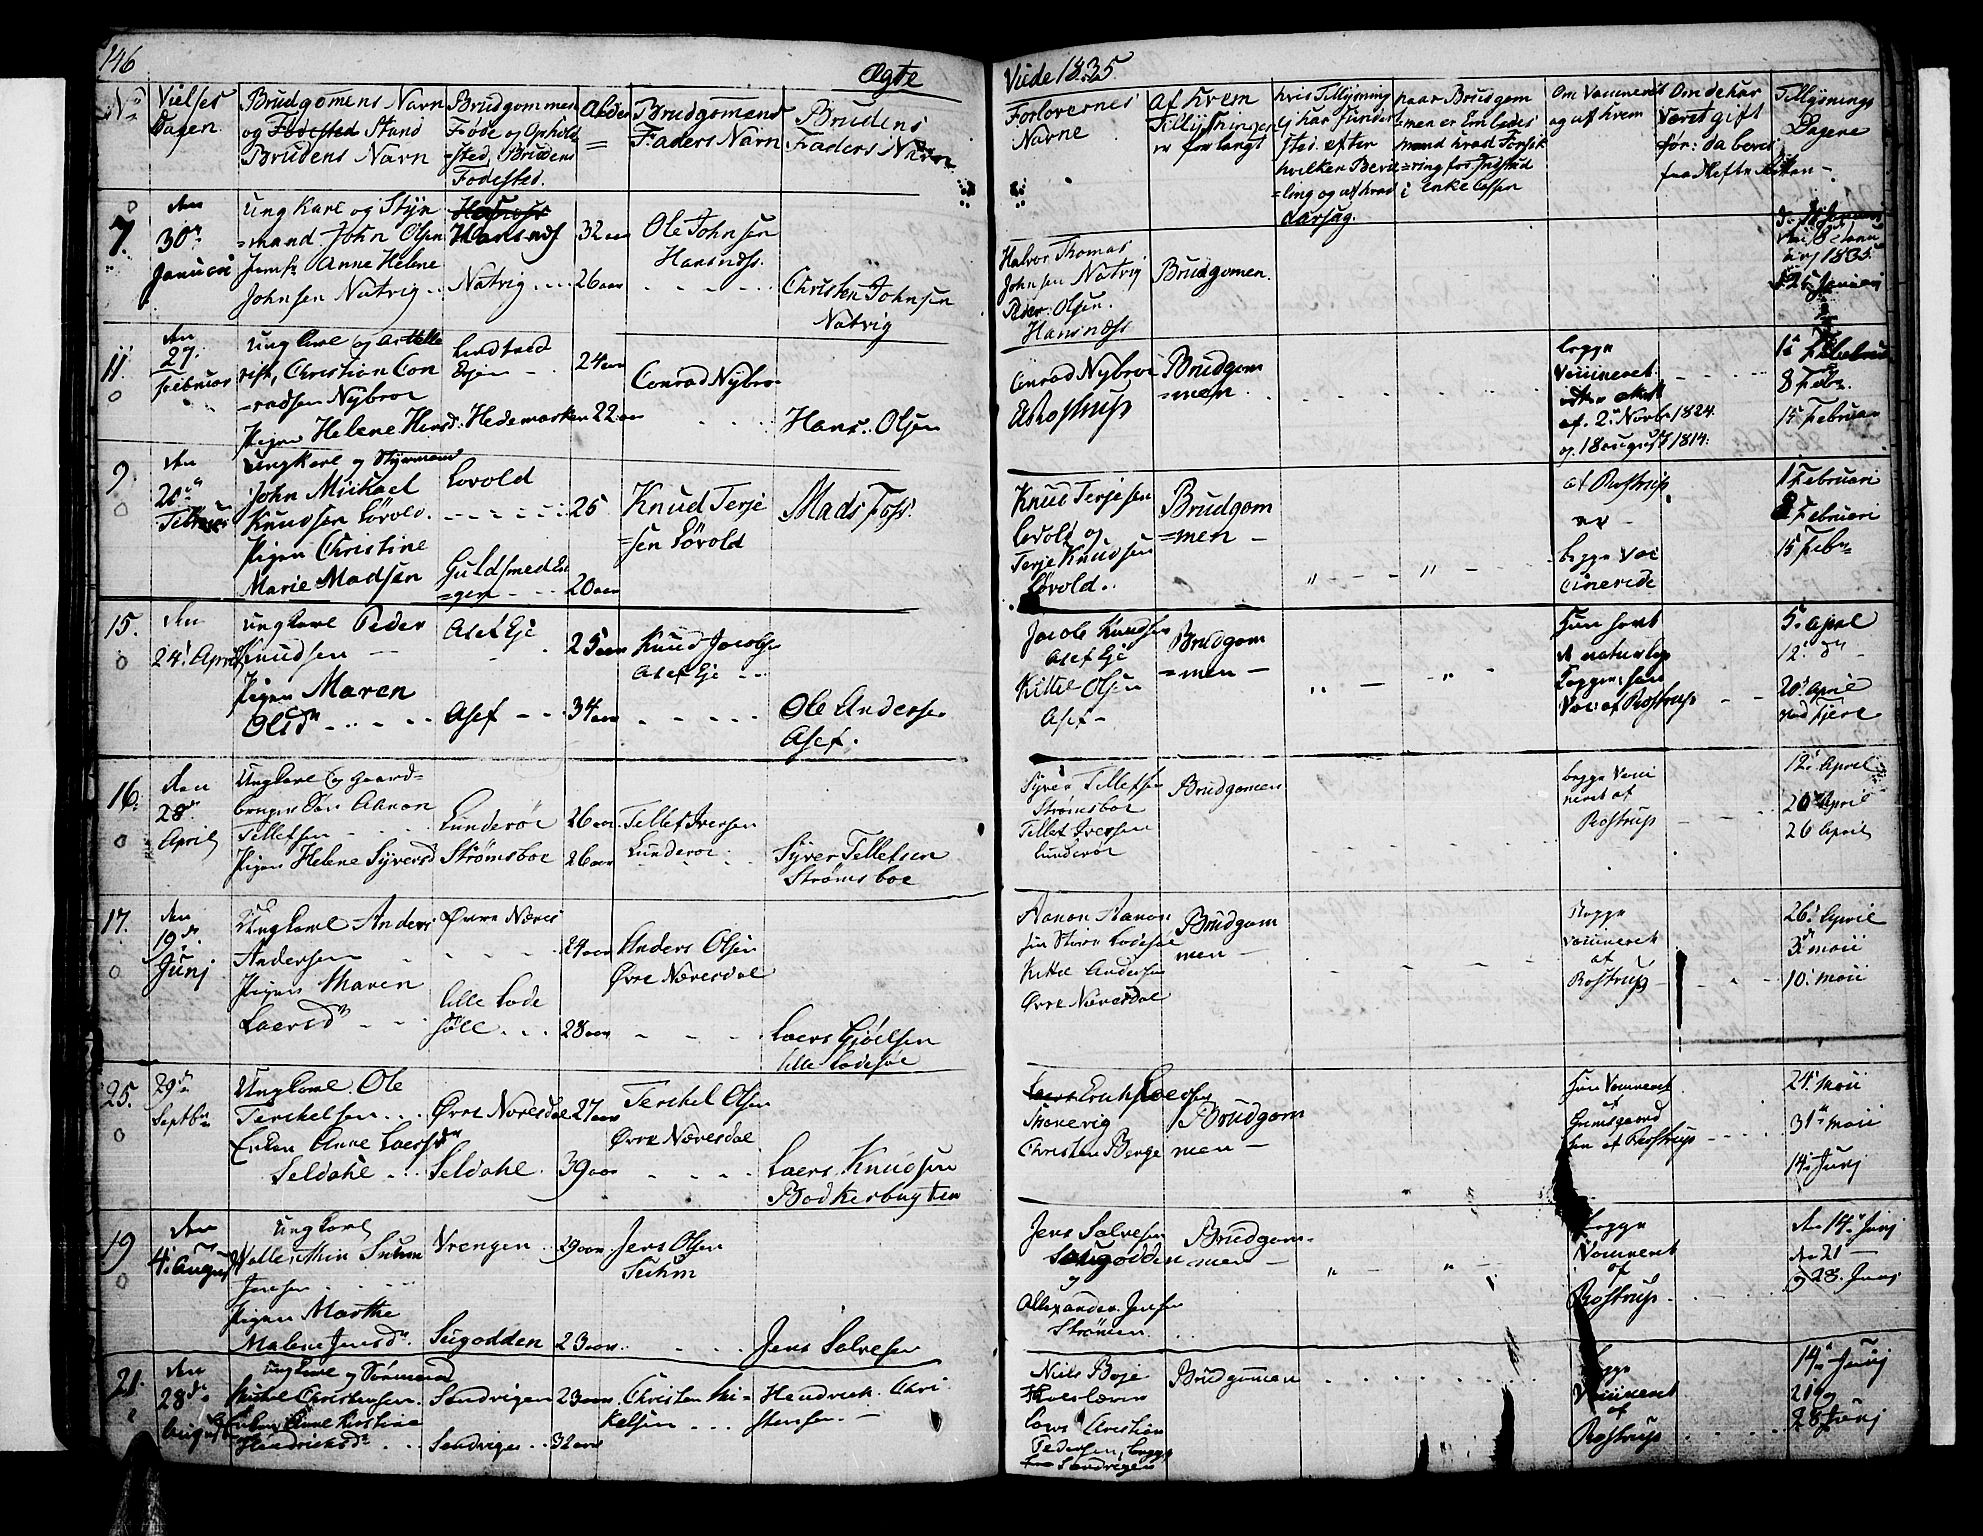 146
Ægte
Viede 1835
No
Vielses Dagen
Brudgomens Navn
og Fødested Stand
Brudens Navn
Brudgommens
Føde og Ophold
=sted, Brudens
Fødested.
Alder
=
Brudgomens
Faders Navn
Brudens
Faders Navn
Forlovernes
Navne
Af Hvem
Tillysningen
er forlangt
hvis Tillysning
ej har funden
Sted. efter
hvilken Bevil
=ling og af hvad
Aarsag.
naar Brudgom
=men er Em
mand hvad Forsik
=ring for Indskud
i Enke Cassen
Om Vaccineret
og af hvem
Om de har
Været gift
før: da beviis
fra Skifte Retten
Tillysnings
Dagene
7.
den
30te
Januari
Ung Karl og Styr
=mand John Olsen
Jomfr Anne Helene
Johnsen Natvig
Hansnes
Natvig
32 aar
26 aar
Ole Johnsen
Hansnæss.
Christen Johnsen
Natvig
Halvor Thomas
Johnsen Natvig
Peder Olsen
Hansnæss
Brudgomen.
1835
25 Januari
11.
den
27.
Februar
Ung Karl og
Christian Con
=radsen Nybroe
Pigen Helene Hansd.
Hedemarken
24 aar
22 aar
Conrad Nybroe
Hans Olsen
Conrad Nybroe
A. Rostrup
Brudgom
=men.
begge
Vaccineret
af. 2. Novb. 1824
og 18 august 1814.
1 Februar
8 Febr.
15 Februar
9.
den
20de
Februar
Ung Karl og Styrmand
John Mickael
Knudsen Løvold.
Pigen Christine
Marie Madsen
Lovold
Guldsmed En
=gen
25
20 aar
Knud Terje
=sen Løvold
Mads Foss.
Knud Terjesen
Løvold og
Terje Knudsen
Løvold.
Brudgom
=men
" - - "
af Rostrup
er
begge Vac
cinerede
1 Februari
8 Februari
15 Febr
15.
den
24. April
Ung Karl Peder
Knudsen
Pigen Maren
Olsd
Asef Eje
Asef
25 aar
34 aar
Knud Jacobs
Asef Eje
Ole Anderse
Asef.
Jacob Knudsen
Asef Eje
Kittel Olsen
Asef
Brudgom
=men
" - "
Hun havt
de naturlig
Kopper, han
Vac: af Rostrup
5. April
12. do
20. April
16.
den
28de
April
Ung Karl og Gaard=
bruger Søn Aanon
Telletsen
Pigen Helene Syversd
Lunderøe
Strømsboe
26 aar
26 aar
Tellef Iversen
Lunderøe
Syver Telletsen
Strømsboe
Syver Tellefsen
Strømsboe
Tellef Iversen
Lunderøe
Brudgomen
begge Vacci
neret af
Rostrup
12. April
20 April
26 April
17.
den
19de
Junj
Ung Karl Anders
Andersen
Pigen Maren
Laersd
Øvre Næres
Lille Lode
søll
24 aar
28 aar
Anders Olsen
Øvre Næresdal
Laers Gjøelsen
Lille Lodesøl
Aanon Aanon
sen Store Lodesøl
Kittel Andersen
Øvre Næresdal
Brudgom
men
Begge
Vaccineret
af
Rostrup
26. April
3. maii
10. maii
25.
29de
Septbr
Ung Karl Ole
Terchelsen
Enken Anne Laersd
Seldahl
Øvre Næresdal
Seldahl
27 aar
39 aar
Terchel Olsen
Øvre Næresdal
Laers Knudsen
Bødkerbugten
Christen Berge
Brudgom
men
Hun Vaccineret
af
Grimsgaard
han af Rostrup
24. maii
31te maii
14. Junj
19
den
4. August
Ung Karl
Vallenthin Suhm
Jensen
Pigen Marthe
Malene Jensd.
Vrengen
Sugodden
29 aar
23 aar
Jens Olsen
Suhm
Jens Salvesen
Jens Salvesen
Sugodden
og
Allexander Jensen
Strømen
Brudgom
men
" - "
begge
Vaccineret
af
Rostrup
den 14. Junj
den 21
og 28. Junj
21.
den
28de
August
Ung Karl og Sømand
Mickel Christensen
Enken Anne Kirstine
Hendricksd
Sandvigen
Sandvigen
23 aar
32 aar
Christen Mi=
kelsen
Hendrick Chri
stensen
Niels Boje
Lars Christian
Pedersen, begge
Sandvigen
Brudgommen
begge
Vaccineret
af
Rostrup
14. Junj
21 og
28 Junj